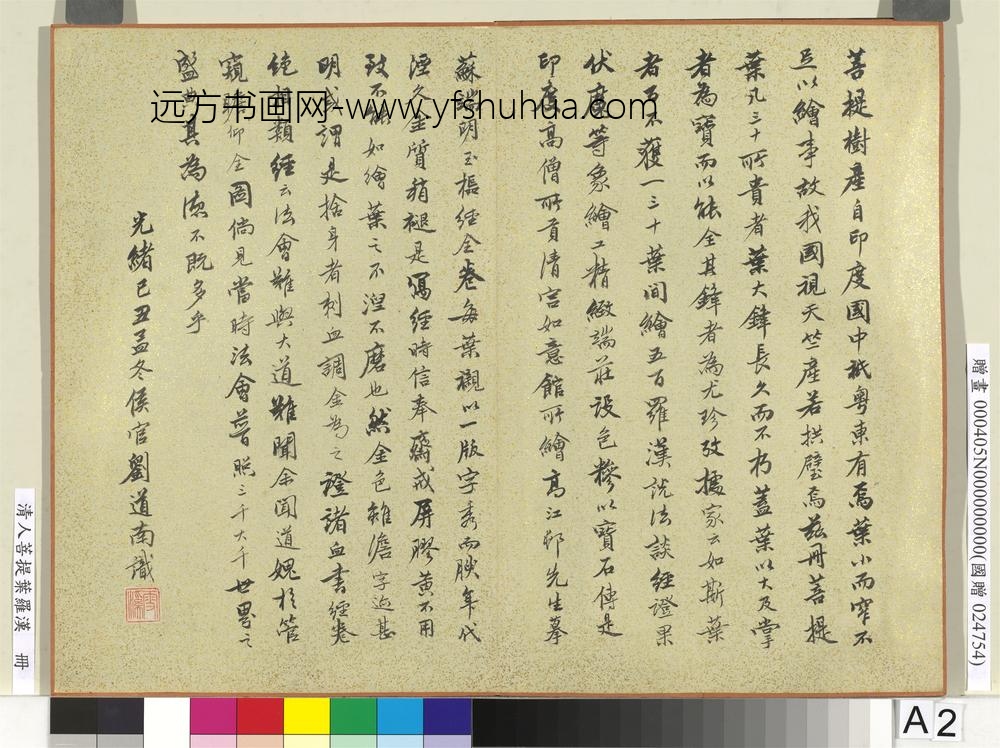 菩提樹產自印度國中祇粵東有焉葉小而窄不
足以繪事故我國視天竺產若拱璧焉茲冊菩提
葉凡三十所貴者葉大鋒長久而不朽蓋葉以大及掌
者為寶而以能全其鋒者為尤珍攷據家云如斯葉
者百不獲一三十葉間繪五百羅漢說法談經證果
伏虎等象繪工精緻端莊設色糝以寶石傳是
印度高僧所貢清宮如意館所繪高江邨先生摹
蘇端明玉樞經全卷每葉襯以一版字秀而腴年代
湮久金質稍褪是寫經時信奉齋戒屏膠黃不用
致不能如繪葉之不湼不磨也然金色雖澹字迹甚
明或謂是捨身者刺血調金為之證諸血書經卷
純相類經云法會難與大道難聞余聞道媿於管
窺瞻仰全圖倘見當時法會普照三千大千世界之
盛典其為德不既多乎
光緒己丑孟冬侯官劉道南識
远方书画网-www.yfshuhua.com
贈畫 000405N000000000(國贈 024754)
清人菩提葉羅漢 冊
A2